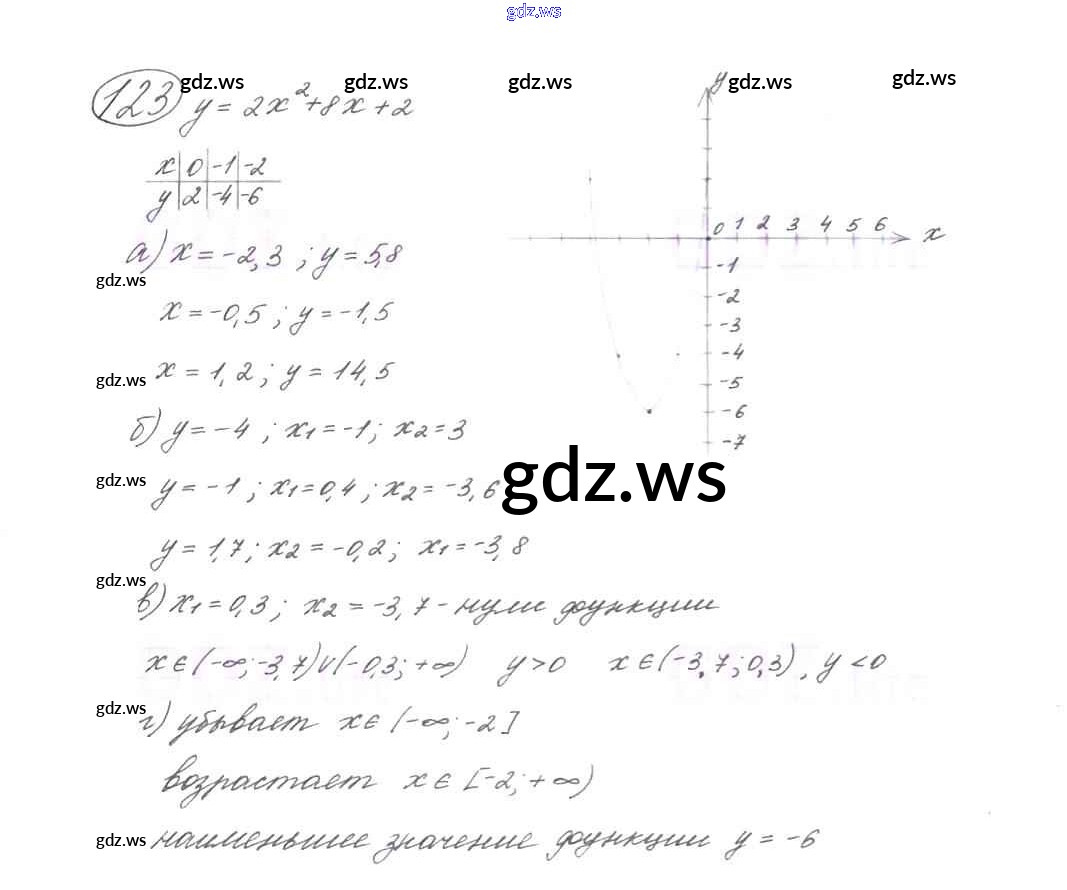 gdz.ws
gdz.ws gdz.ws gdz.ws gdz.ws gdz.ws
123 y = 2x²+8x+2
x | 0 | -1 | -2
y | 2 | -4 | -6
а) x = -2,3 ; y = 5,8
gdz.ws
x = -0,5 ; y = -1,5
gdz.ws x = 1,2 ; y = 14,5
б) y = -4 ; x1 = -1 ; x2 = 3
gdz.ws y = -1 ; x1 = 0,4 ; x2 = -3,6
gdz.ws
y = 1,7 ; x2 = -0,2 ; x1 = -3,8
gdz.ws
в) x1 = 0,3 ; x2 = -3,7 - нули функции
x ∈ (-∞; -3,7) ∪ (-0,3; +∞) y > 0 x ∈ (-3,7; 0,3), y < 0
gdz.ws
г) убывает x ∈ (-∞; -2]
возрастает x ∈ [-2; +∞)
gdz.ws наименьшее значение функции y = -6
y
0 1 2 3 4 5 6 x
-1
-2
-3
-4
-5
-6
-7